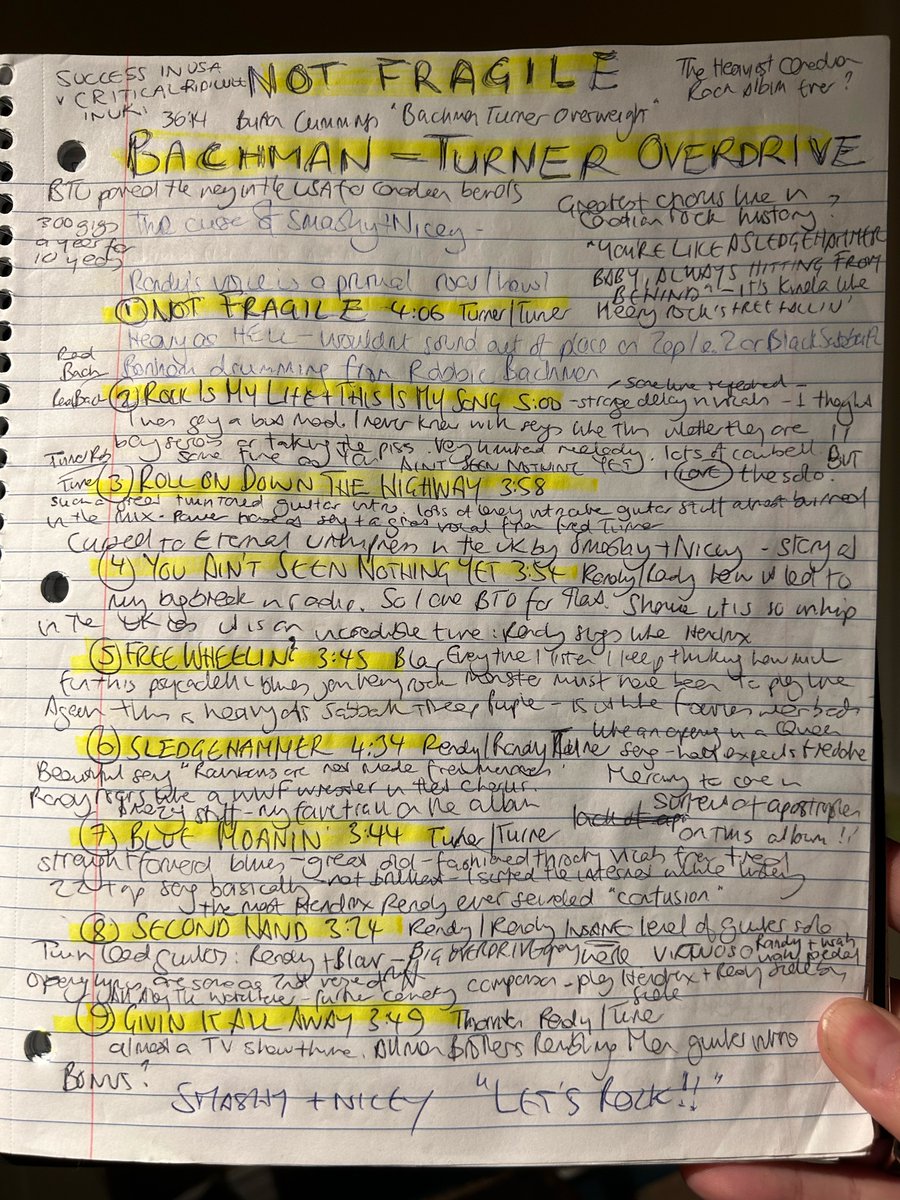 SUCCESS IN USA
v CRITICAL RIDICULE
IN UK!
NOT FRAGILE
The Heaviest Canadian
Rock Album Ever?
36:14 Burton Cummings "Bachman Turner Overweight"
BACHMAN-TURNER OVERDRIVE
BTO paved the way in the USA for Canadian bands
300 gigs
a year for
10 years
The curse of Smashy + Nicey -
Greatest chorus line in
Canadian rock history?
"YOU'RE LIKE A SLEDGEHAMMER
BABY, ALWAYS HITTING FROM
BEHIND" - it's kinda like
Heavy rock's FREE FALLIN'
Randy's voice is a primal roar/howl
① NOT FRAGILE 4:06 Turner/Turner
Heavy as HELL - wouldn't sound out of place on Zep 1 or 2 or Black Sabbath
Bonham drumming from Robbie Bachman
② ROCK IS MY LIFE + THIS IS MY SONG 5:00 - same line repeated -
strange delay in vocals - I thought
I was going mad. I never know with songs like this whether they are !!
being serious or taking the piss. Very limited melody. lots of cowbell BUT
same time as YOU AIN'T SEEN NOTHING YET
I LOVE the solo.
③ ROLL ON DOWN THE HIGHWAY 3:58
such a great twin toned guitar intro. lots of very intricate guitar stuff almost buried
in the mix - Power house song + a great vocal from Fred Turner
Cursed to Eternal unhipness in the UK by Smashy + Nicey - story of
④ YOU AIN'T SEEN NOTHING YET 3:54 Randy/Randy how it led to
my big break in radio. So I owe BTO for that. Shame it is so unhip
in the UK as it is an incredible tune: Randy sings like Hendrix
⑤ FREE WHEELIN' 3:45 Blair Every time I listen I keep thinking how much
fun this psycadelic blues jam heavy rock monster must have been to play live
Again this is heavy as Sabbath + Deep Purple -
⑥ SLEDGEHAMMER 4:34 Randy/Randy Turner
like an opening in a Queen
song - half expects Freddie
Mercury to come in
Beautiful song "Rainbows are not made from
Randy roars like a WWF wrestler in that chorus.
stuff - my fave track on the album
Surfeit of apostrophes
on this album!!
⑦ BLUE MOANIN' 3:44 Turner/Turner
straight forward blues - great old-fashioned throaty vocals from Fred
ZZ top song basically - not brilliant - I
the most Hendrix Randy ever sounded "confusion"
⑧ SECOND HAND 3:24 Randy/Randy INSANE level of guitar solo
Twin lead guitar: Randy + Blair - BIG OVERDRIVE VIRTUOSO Randy + wah
wah pedal
Opening lyrics are same as 2nd verse of
ALL ALONG THE WATCHTOWER - further Comparison - play Hendrix + Randy side by
side
⑨ GIVIN IT ALL AWAY 3:49 Thornton Randy/Turner
almost a TV show theme. Allman Brothers Rambling Man guitar intro
BONUS?
SMASHY + NICEY "LET'S ROCK!!"